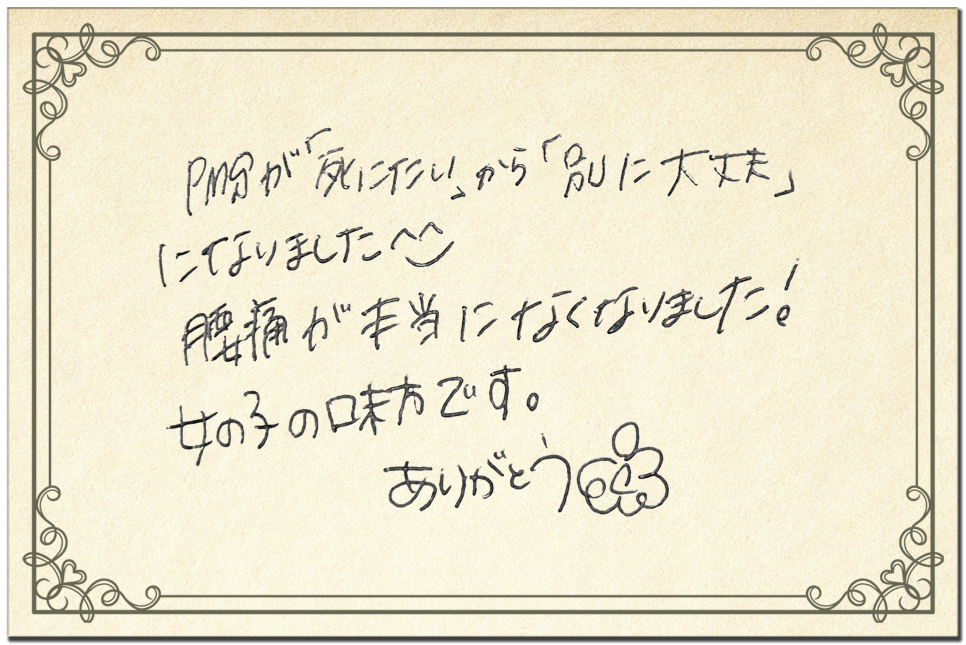 PM分が「死にたい」から「別に大丈夫」
になりました^^
腰痛が本当になくなりました!
女の子の味方です。
ありがとう